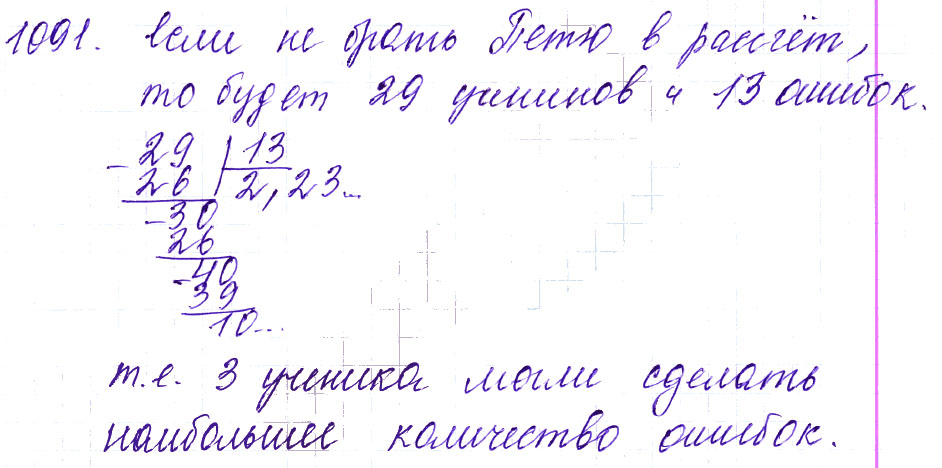 1091. Если не брать Петю в рассчёт,
то будет 29 учинов и 13 ошибок.
- 29 | 13
26 2,23...
- 30
26
- 40
39
10...
т.е. 3 ученика могли сделать
наибольшее количество ошибок.